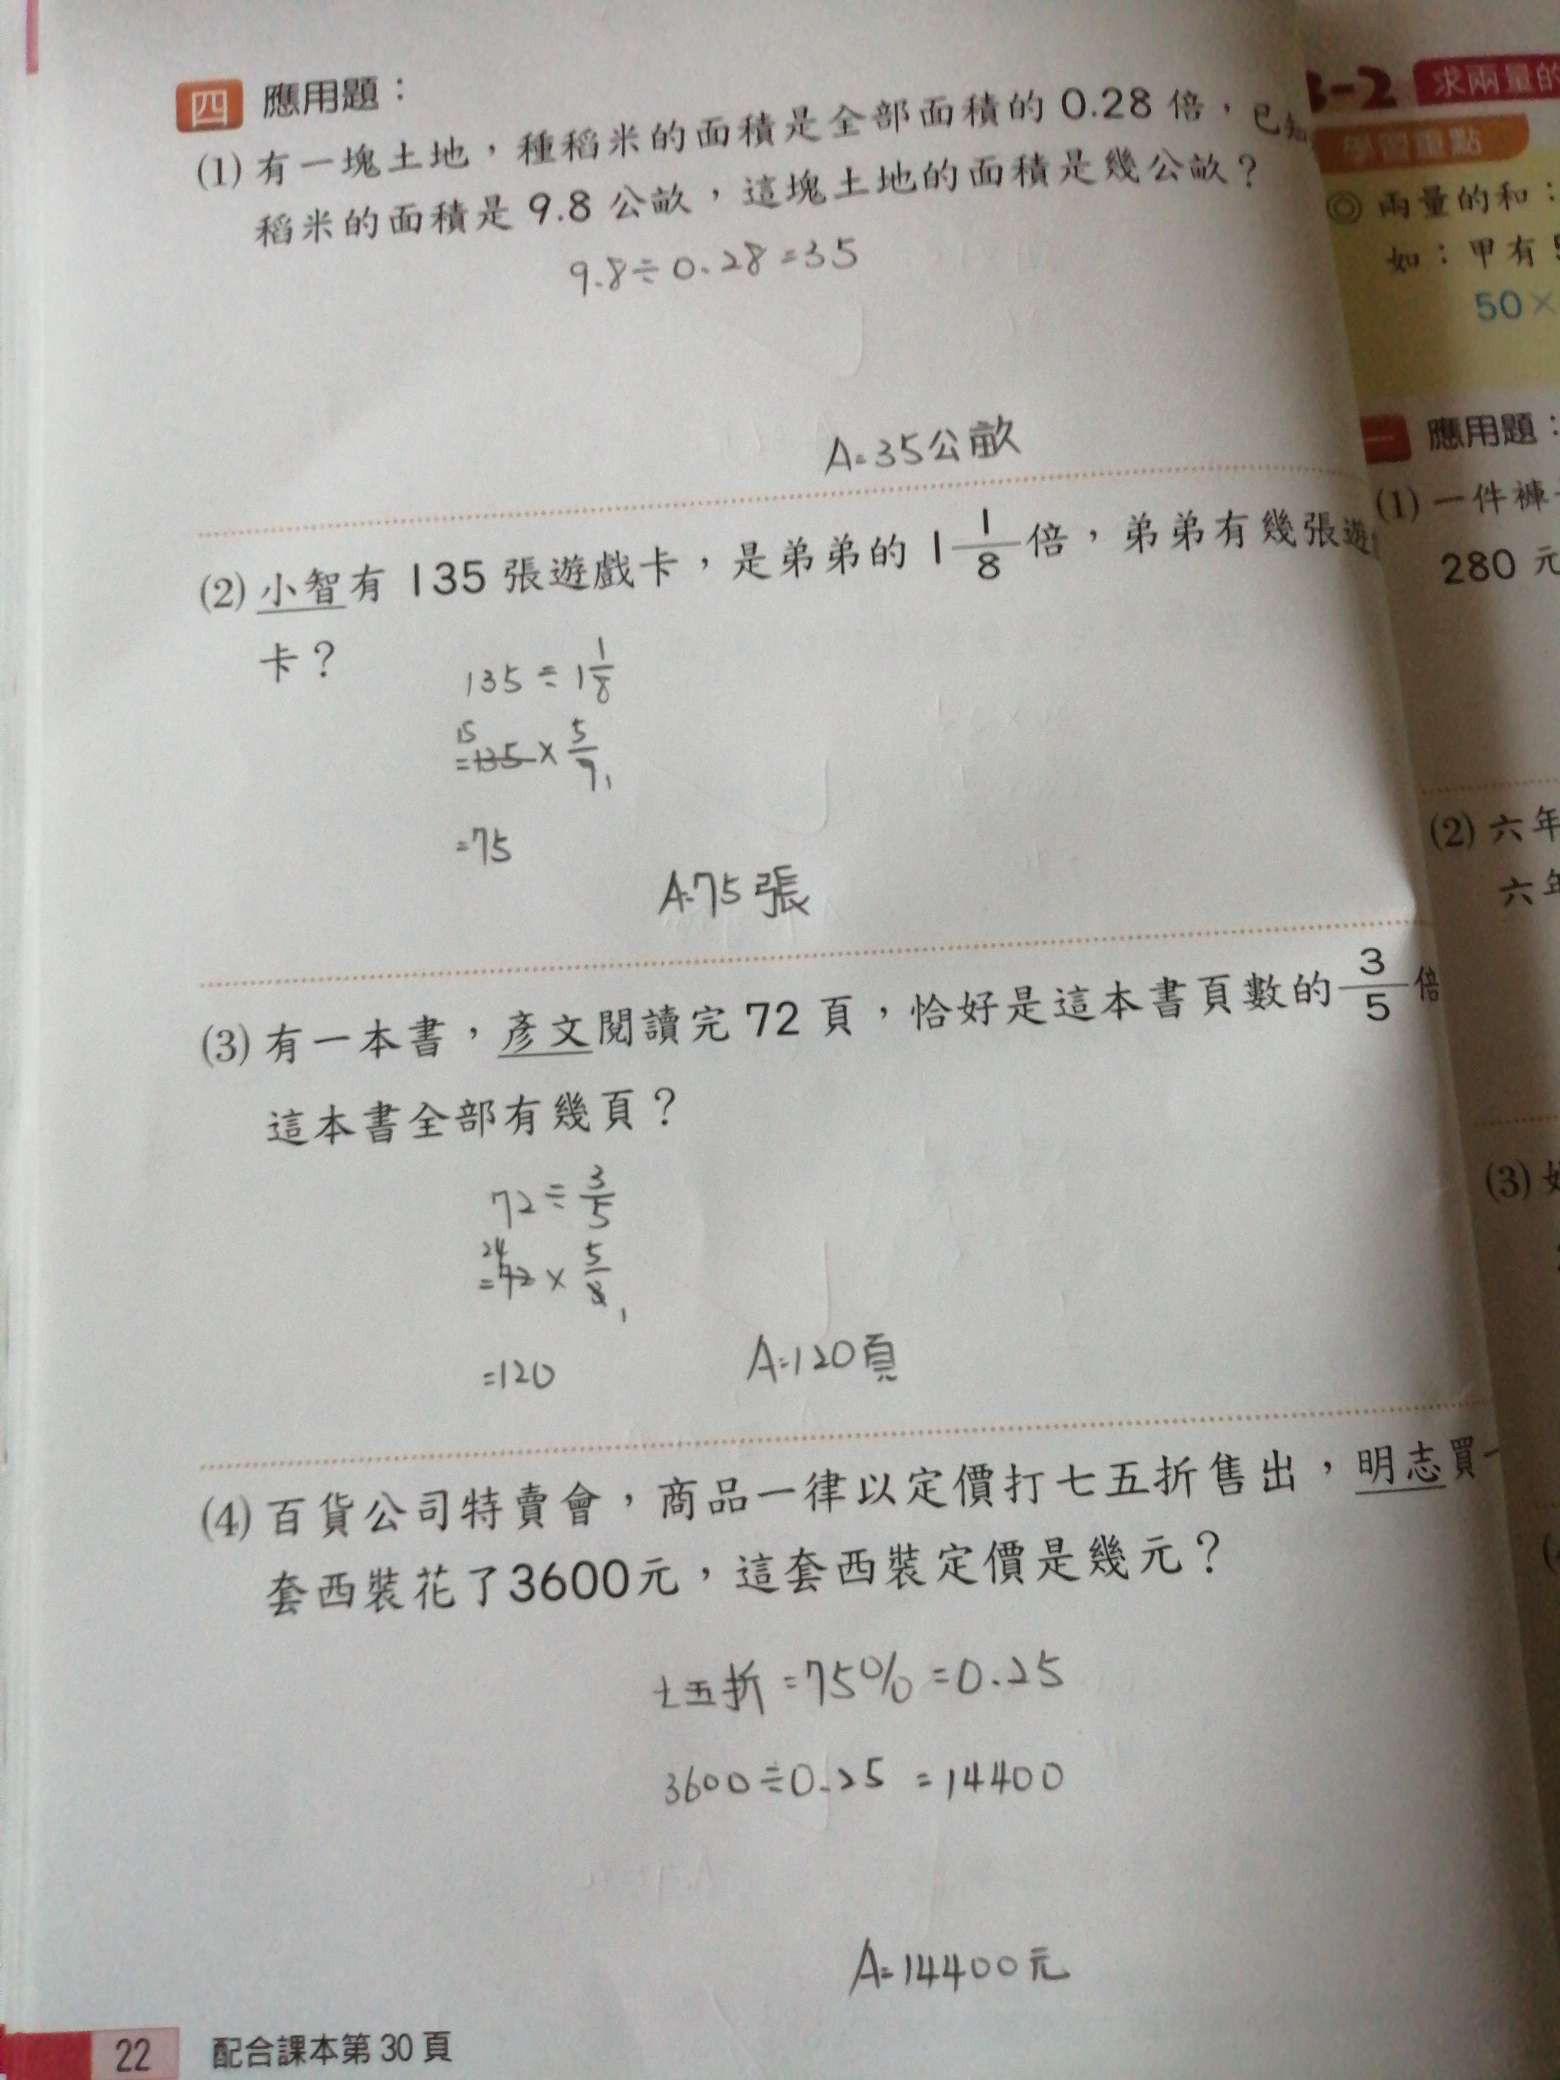 四 應用題：
(1) 有一塊土地，種稻米的面積是全部面積的 0.28 倍，已知
稻米的面積是 9.8 公畝，這塊土地的面積是幾公畝？
9.8÷0.28=35
A=35公畝
(2) 小智有 135 張遊戲卡，是弟弟的 1 1/8 倍，弟弟有幾張遊
卡？
135÷1 1/8
15
=135×5/9 1
=75
A=75張
(3) 有一本書，彥文閱讀完 72 頁，恰好是這本書頁數的 3/5 倍
這本書全部有幾頁？
72÷3/5
24
=72×5/3 1
=120
A=120頁
(4) 百貨公司特賣會，商品一律以定價打七五折售出，明志買一
套西裝花了3600元，這套西裝定價是幾元？
七五折=75%=0.25
3600÷0.25=14400
A=14400元
22 配合課本第 30 頁
3-2 求兩量的
學習重點
◎ 兩量的和：
如：甲有 5
50×
一 應用題：
(1) 一件褲
280 元
(2) 六年
六年
(3)